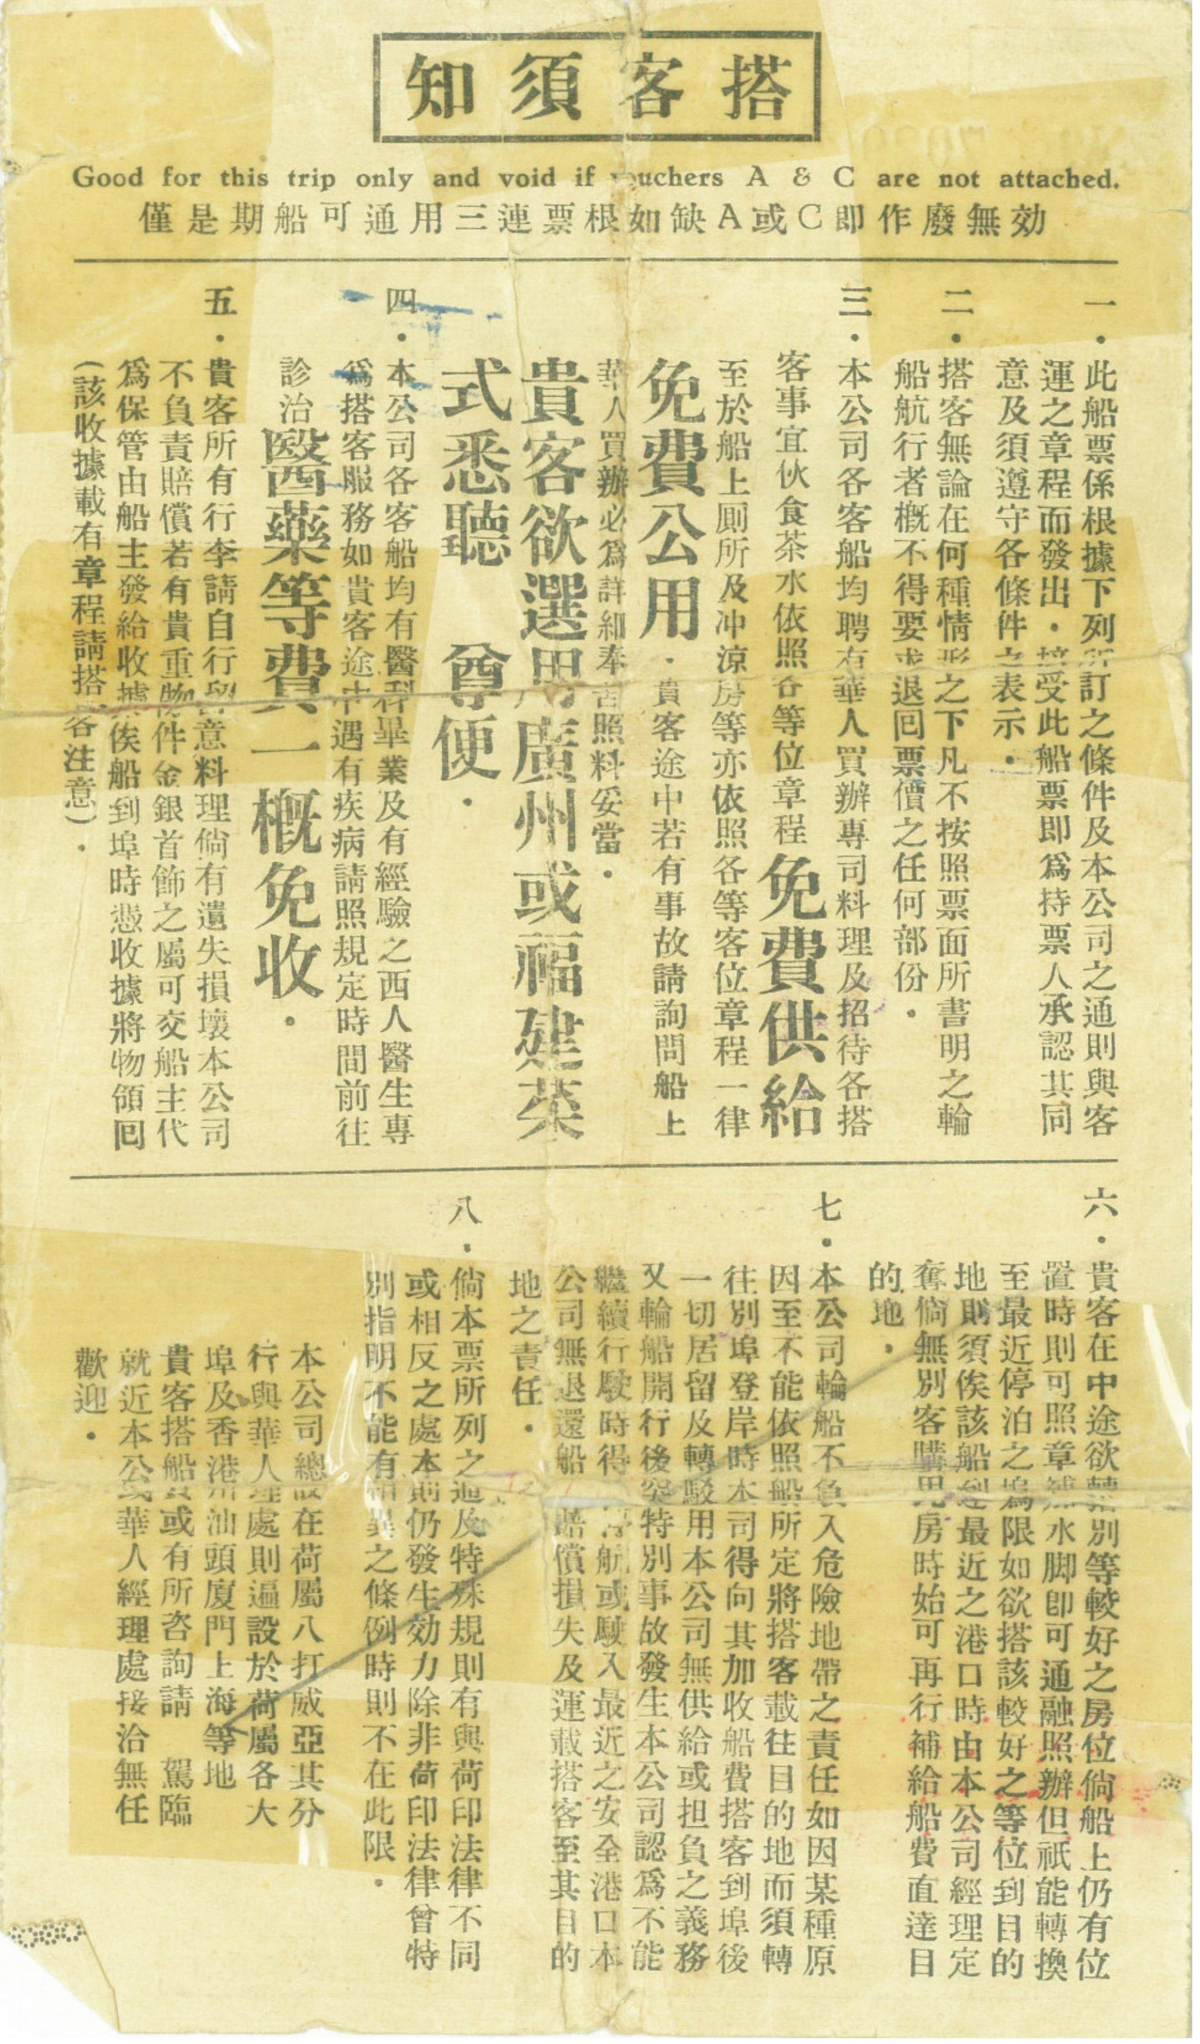 搭客須知
Good for this trip only and void if vouchers A & C are not attached.
僅是期船可通用三連票根如缺A或C即作廢無効
一・此船票係根據下列所訂之條件及本公司之通則與客
運之章程而發出・接受此船票即爲持票人承認其同
意及須遵守各條件之表示・
二・搭客無論在何種情形之下凡不按照票面所書明之輪
船航行者槪不得要求退回票價之任何部份・
三・本公司各客船均聘有華人買辦專司料理及招待各搭
客事宜伙食茶水依照各等位章程免費供給
至於船上厠所及冲涼房等亦依照各等客位章程一律
免費公用・貴客途中若有事故請詢問船上
華人買辦必爲詳細奉告照料妥當・
貴客欲選用廣州或福建菜
式悉聽　尊便・
四・本公司各客船均有醫科畢業及有經驗之西人醫生專
爲搭客服務如貴客途中遇有疾病請照規定時間前往
診治醫藥等費一槪免收・
五・貴客所有行李請自行留意料理倘有遺失損壞本公司
不負責賠償若有貴重物件金銀首飾之屬可交船主代
爲保管由船主發給收據俟船到埠時憑收據將物領回
(該收據載有章程請搭客注意)・
六・貴客在中途欲轉別等較好之房位倘船上仍有位
置時則可照章補水脚卽可通融照辦但祇能轉換
至最近停泊之埠爲限如欲搭該較好之等位到目的
地則須俟該船到最近之港口時由本公司經理定
奪倘無別客購用房時始可再行補給船費直達目
的地・
七・本公司輪船不負入危險地帶之責任如因某種原
因至不能依照船所定將搭客載往目的地而須轉
往別埠登岸時本司得向其加收船費搭客到埠後
一切居留及轉駁用本公司無供給或担負之義務
又輪船開行後突特別事故發生本公司認爲不能
繼續行駛時得航或駛入最近之安全港口本
公司無退還船賠償損失及運載搭客至其目的
地之責任・
八・倘本票所列之及特殊規則有與荷印法律不同
或相反之處本則仍發生効力除非荷印法律曾特
別指明不能有相異之條例時則不在此限・
本公司總設在荷屬八打威亞其分
行與華人理處則遍設於荷屬各大
埠及香港汕頭廈門上海等地
貴客搭船或有所咨詢請　駕臨
就近本公或華人經理處接洽無任
歡迎・